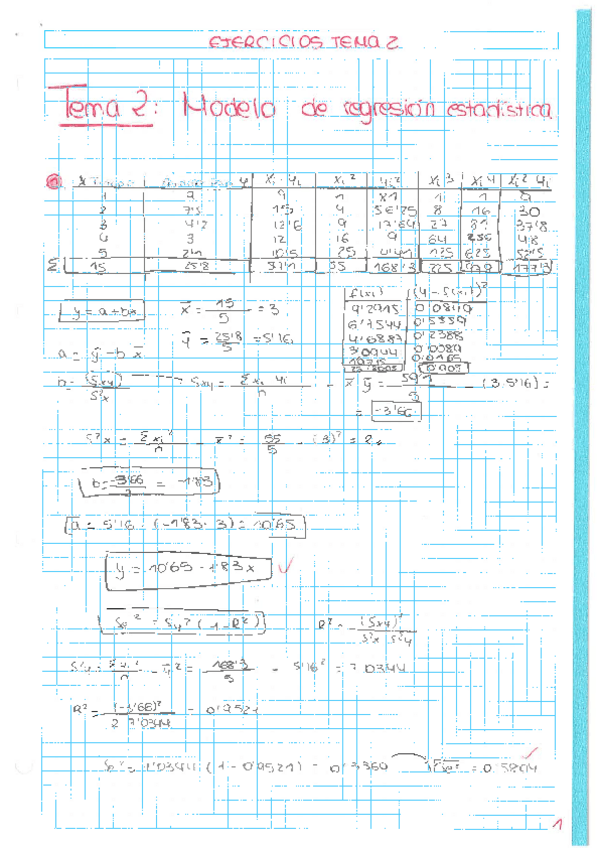 EJERCICIOS TEMA 2
Tema 2: Modelo de regresión estadística
① x Tiempo y xi·yi xi² yi² xi³ xi⁴ xi²yi
1 9 9 1 81 1 1 9
2 7'5 15 4 56'25 8 16 30
3 4'2 12'6 9 17'64 27 81 37'8
4 3 12 16 9 64 256 48
5 2'1 10'5 25 4'41 125 625 52'5
Σ 15 25'8 59'1 55 168'3 225 979 177'3
f(xi) (y-f(xi))²
9'2915
6'7544
4'6887 0'2388
3'0944 0'0089
y = a+bx
x̄ = 15/5 = 3
ȳ = 25'8/5 = 5'16
a = ȳ - b x̄
b = (Sxy)/S²x
Sxy = Σxi yi/n - x̄ ȳ = 59'1/5 - (3·5'16) =
= -3'66
S²x = Σxi²/n - x̄² = 55/5 - (3)² = 2
b = -3'66/2 = -1'83
a = 5'16 - (-1'83·3) = 10'65
y = 10'65 - 1'83x ✓
Se² = Sy² (1-R²)
R² = (Sxy)²/S²x S²y
S²y = Σyi²/n - ȳ² = 168'3/5 - 5'16² = 7'0344
R² = (-3'66)²/2·7'0344 = 0'9521
Se² = 7'0344 (1-0'9521) = 0'3369 √Se² = 0'5804 ✓
1